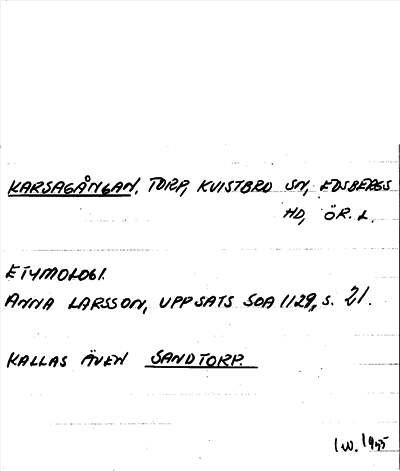 KARSAGÅNGAN, TORP, KVISTBRO SN, EDSBERGS
HD, ÖR. L.
ETYMOLOGI.
ANNA LARSSON, UPPSATS SOA 1129, S. 21.
KALLAS ÄVEN SANDTORP.